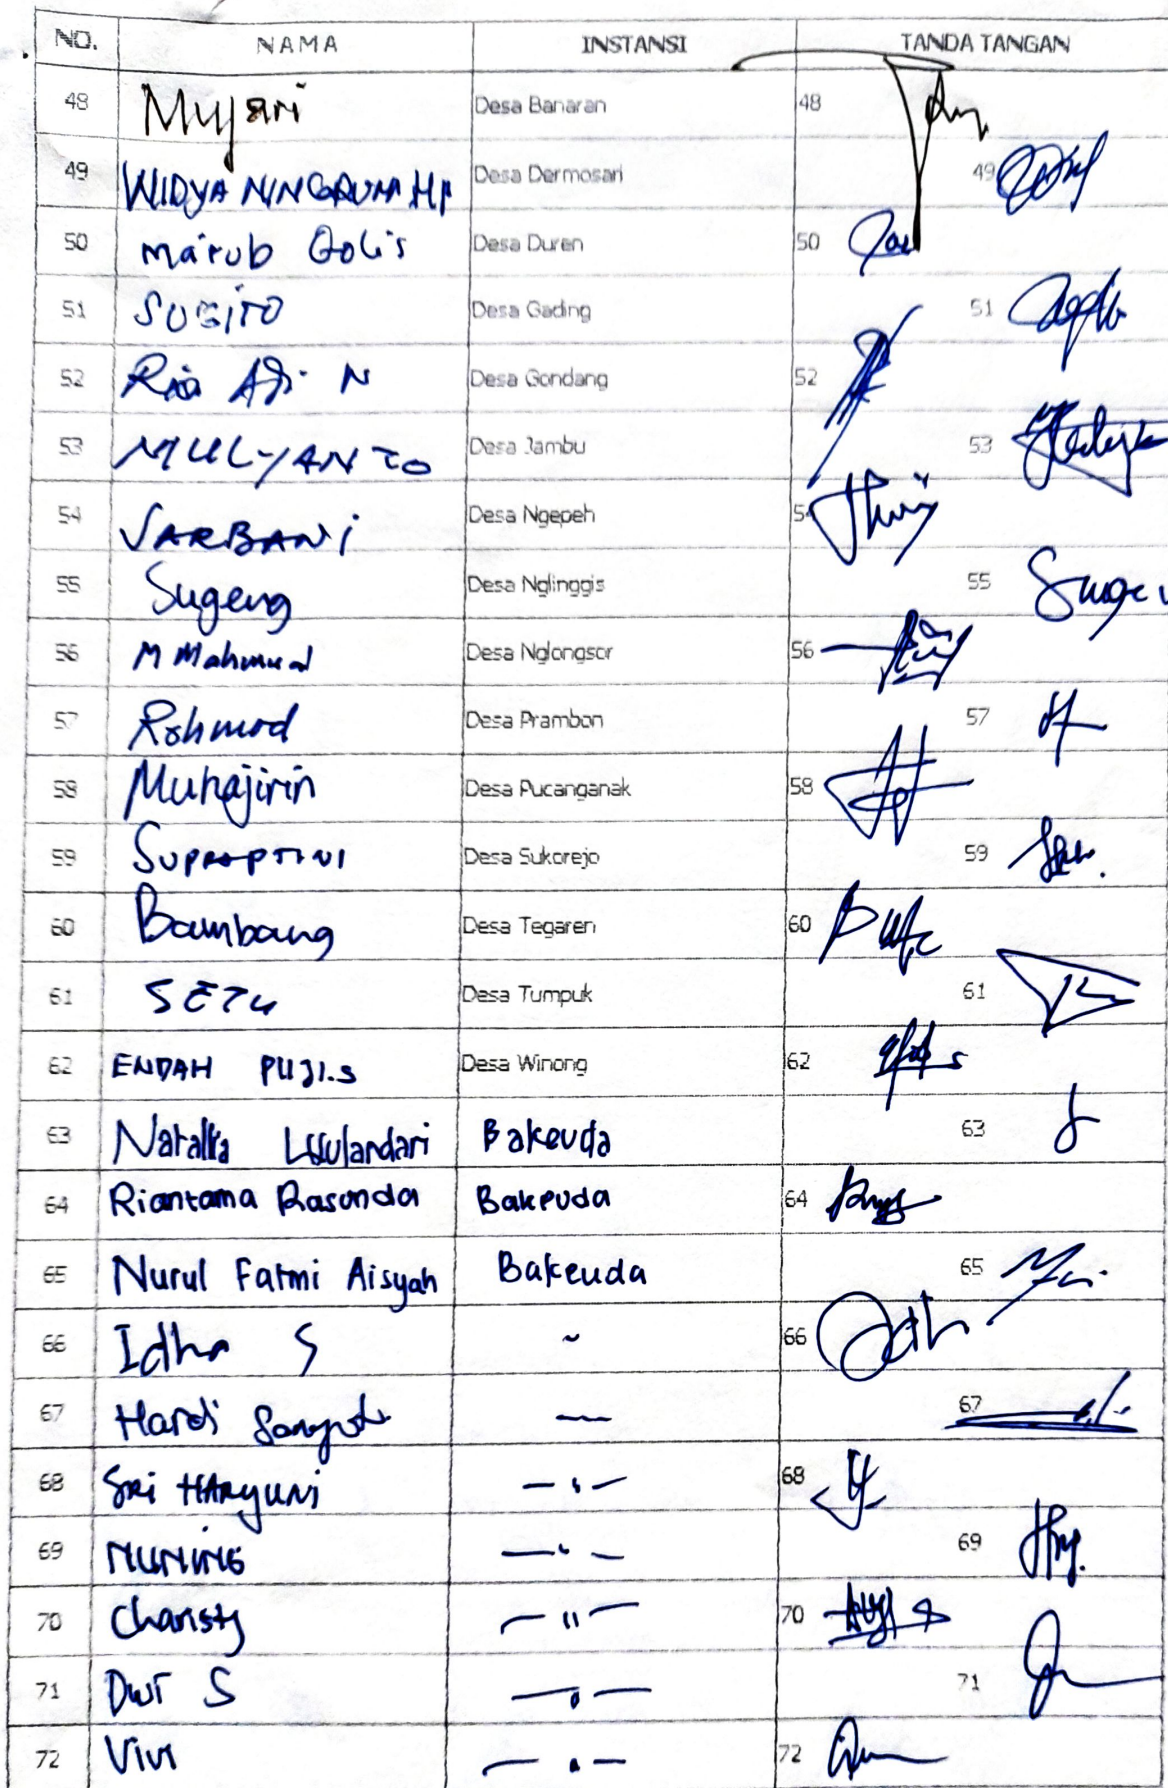 NO. NAMA INSTANSI TANDA TANGAN
48 Mujari Desa Banaran 48
49 WIDYA NINGRUM HP Desa Dermosari 49
50 Ma'rub Desa Duren 50
51 SUGITO Desa Gading 51
52 Rio Adi N Desa Gondang 52
53 MULYANTO Desa Jambu 53
54 SARBANi Desa Ngepeh 54
55 Sugeng Desa Nglinggis 55
56 M Mahmud Desa Nglongsor 56
57 Rohmad Desa Prambon 57
58 Muhajirin Desa Pucanganak 58
59 SUPRAPTINI Desa Sukorejo 59
60 Bambang Desa Tegaren 60
61 SETU Desa Tumpuk 61
62 ENDAH PUJI.S Desa Winong 62
63 Natalia Wulandari Bakeuda 63
64 Riantama Rasanda Bakeuda 64
65 Nurul Fatmi Aisyah Bakeuda 65
66 Idha S ~ 66
67 Hardi — 67
68 SRi HARyUNi — " — 68
69 NUNING — " — 69
70 Charisty — " — 70
71 Dwi S — " — 71
72 Vivi — " — 72